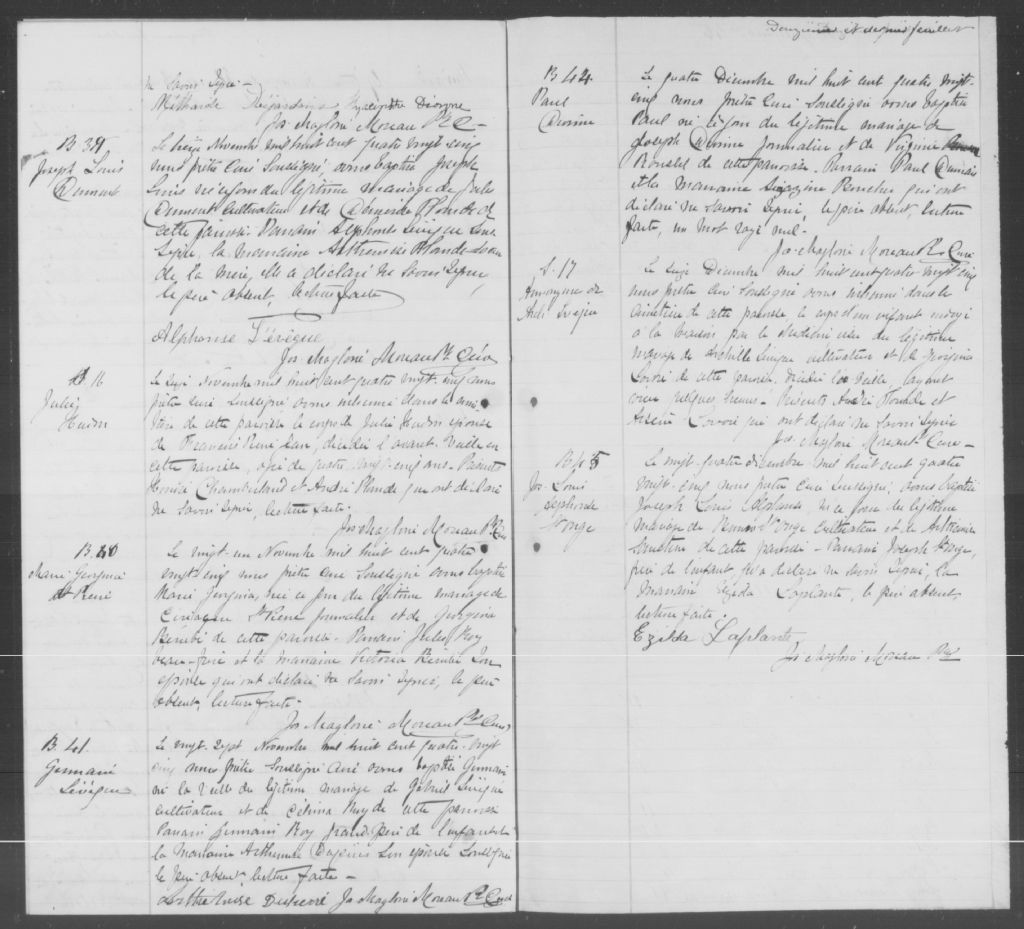 ne savoir signer -
Méthaide Desjardins Hyacinthe Dionne
Jos Magloire Moreau Ptre C -
B 39
Joseph Louis
Dumont
Le treize Novembre mil huit cent quatre vingt cinq
nous prêtre Curé soussigné, avons baptisé Joseph
Louis né ce jour du légitime mariage de Jules
Dumont cultivateur et de Démerise Plourde de
cette paroisse. Parrain Alphonse Lévêque sous
signé, la marraine Arthémise Plourde soeur
de la mère, elle a déclaré ne savoir signer,
le père absent, lecture faite
Alphonse Lévêque
Jos Magloire Moreau Ptre Curé
S 16
Julie
Hudon
Le seize Novembre mil huit cent quatre vingt-cinq nous
prêtre curé soussigné avons inhumé dans le cime
tière de cette paroisse le corps de Julie Hudon épouse
de François René Jean, décédée l'avant-veille en
cette paroisse, agée de quatre-vingt-cinq ans. Présents
Chamberland et André Plourde qui ont déclaré
ne savoir signer, lecture faite.
Jos Magloire Moreau Ptre Curé
B. 40
Marie Georgina
St René
Le vingt-un Novembre mil huit cent quatre
vingt-cinq nous prêtre curé soussigné avons baptisé
Marie Georgina, née ce jour du légitime mariage de
St René journalier et de Georgina
Bérubé de cette paroisse. Parrain Jules Roy
beau-frère et la marraine Victoria Bérubé son
épouse qui ont déclaré ne savoir signer, le père
absent, lecture faite -
Jos Magloire Moreau Ptre Curé
B 41.
Germain
Lévêque
Le vingt-sept Novembre mil huit cent quatre-vingt
cinq nous prêtre soussigné curé avons baptisé Germain
né la veille du légitime mariage de Gabriel Lévêque
cultivateur et de Célina Roy de cette paroisse
Parrain Germain Roy grand-père de l'enfant et
la marraine Arthémise son épouse soussignée
le père absent, lecture faite -
Jos Magloire Moreau Ptre Curé
Douzième et dernier feuillet
B 42
Paul
Dionne
Le quatre Décembre mil huit cent quatre vingt
cinq nous prêtre Curé soussigné avons baptisé
Paul né ce jour du légitime mariage de
Joseph Dionne journalier et de Virginie
de cette paroisse. Parrain Paul Dumais
et la marraine Boucher qui ont
déclaré ne savoir signer, le père absent lecture
faite, un mot rayé nul -
Jos Magloire Moreau Ptre Curé
S. 17
Anonyme de
Lévêque
Le seize Décembre mil huit cent quatre vingt cinq
nous prêtre curé soussigné avons inhumé dans le
cimetière de cette paroisse, le corps d'un enfant ondoyé
à la maison par le médecin né du légitime
mariage de Achille Lévêque cultivateur et de Georgina
de cette paroisse. Décédé la veille, ayant
vécu quelques heures - Présents André Plourde et
qui ont déclaré ne savoir signer
Jos. Magloire Moreau Ptre Curé -
Jos. Louis
Alphonse
Le vingt-quatre décembre mil huit cent quatre
vingt-cinq nous prêtre curé soussigné, avons baptisé
Joseph Louis Alphonse, né ce jour du légitime
mariage de cultivateur et de
de cette paroisse - Parrain Joseph
père de l'enfant qui a déclaré ne savoir signer, la
marraine Ezilda Laplante, le père absent,
lecture faite.
Ezilda Laplante
Jos Magloire Moreau Ptre